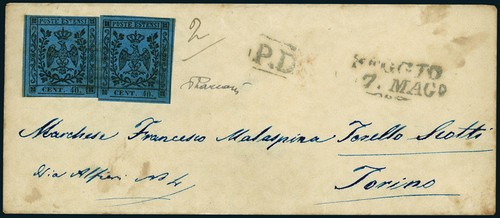 POSTE ESTENSI
POSTE ESTENSI
CENT. 40.
CENT. 40.
2
P.D
REGGIO
7. MAGO
Marchese Francesco Malaspina Torello Scotti
Via Alfieri No 4
Torino